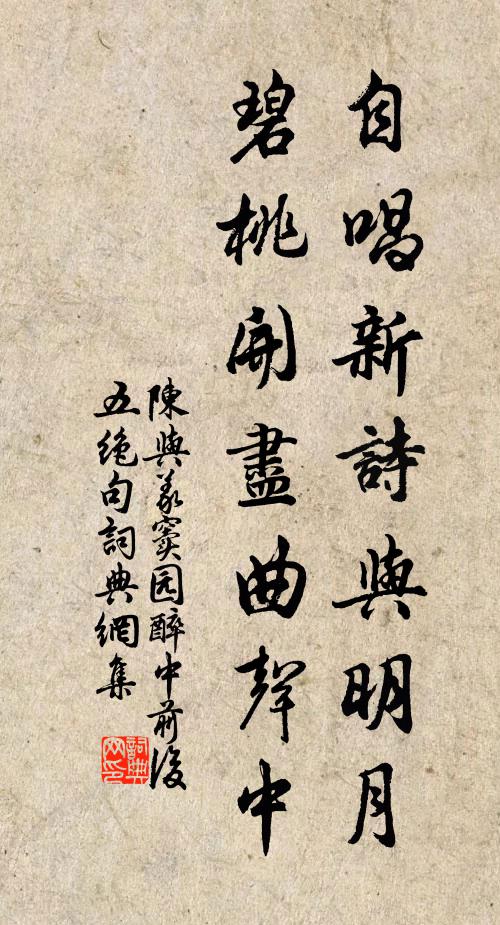 自唱新詩與明月
碧桃開盡曲聲中
陳與義窦园醉中前後
五絶句詞典網集
詞典网印